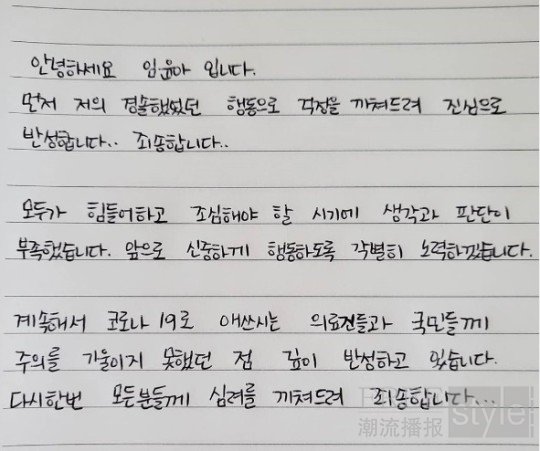 안녕하세요 임윤아 입니다.
먼저 저의 경솔했었던 행동으로 걱정을 끼쳐드려 진심으로
반성합니다.. 죄송합니다..
모두가 힘들어하고 조심해야 할 시기에 생각과 판단이
부족했습니다. 앞으로 신중하게 행동하도록 각별히 노력하겠습니다.
계속해서 코로나 19로 애쓰시는 의료진들과 국민들께
주의를 기울이지 못했던 점 깊이 반성하고 있습니다.
다시한번 모든분들께 심려를 끼쳐드려 죄송합니다...
style
潮流播报